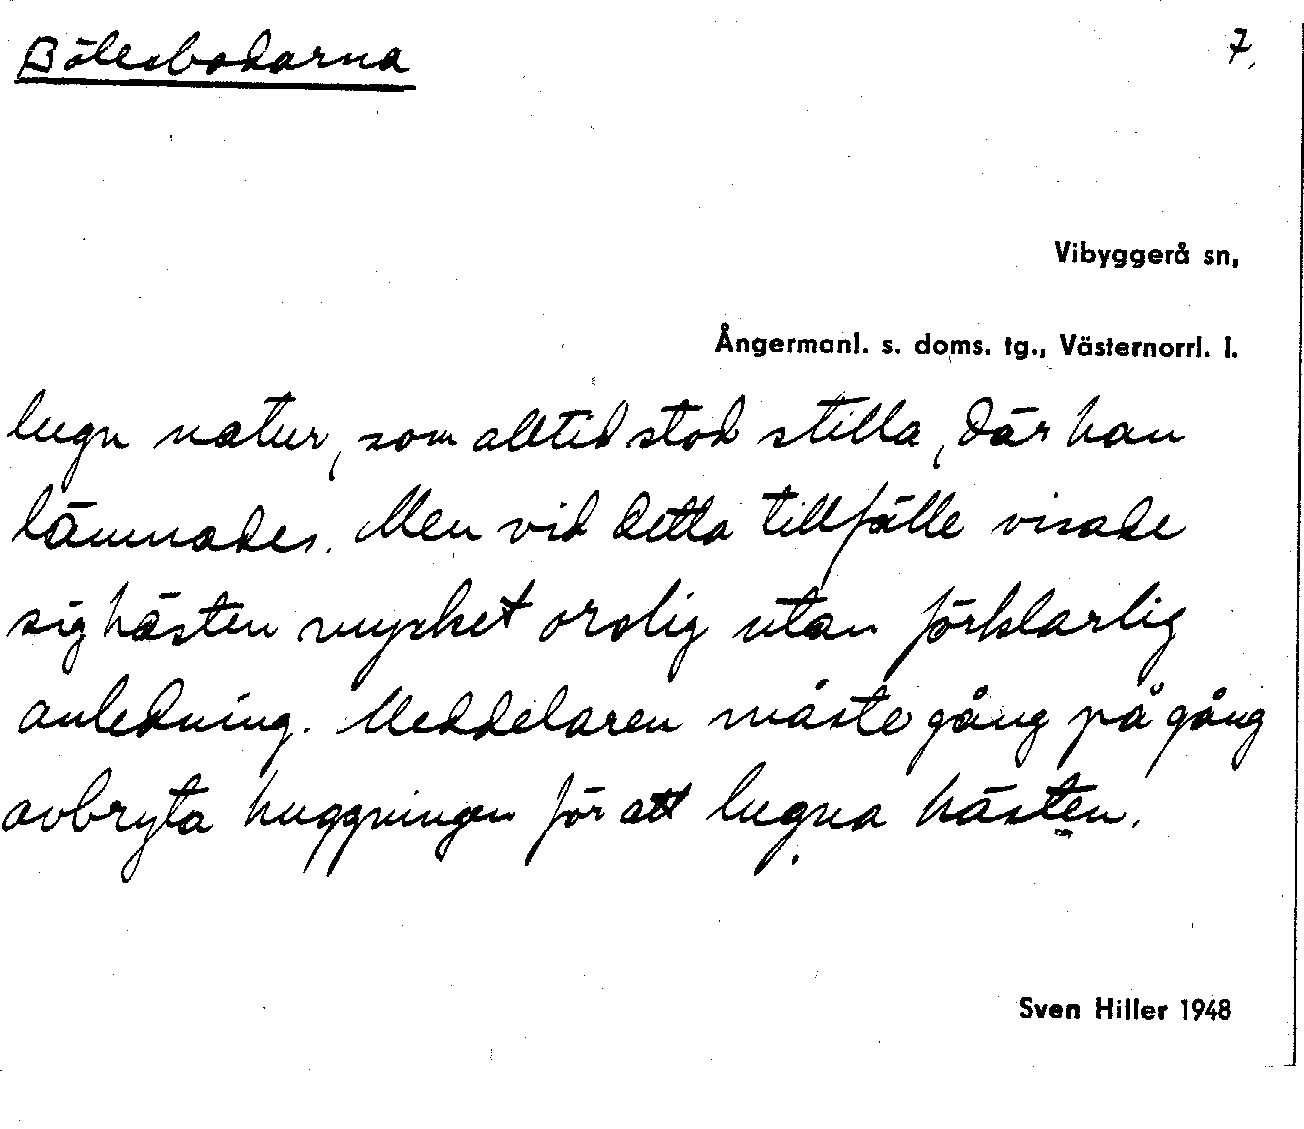 Bölesbodarna
7.
Vibyggerå sn,
Ångermanl. s. doms. tg., Västernorrl. l.
lugn natur, som alltid stod stilla, där han
lämnades. Men vid detta tillfälle visade
sig hästen mycket orolig utan förklarlig
anledning. Meddelaren måste gång på gång
avbryta huggningen för att lugna hästen.
Sven Hiller 1948